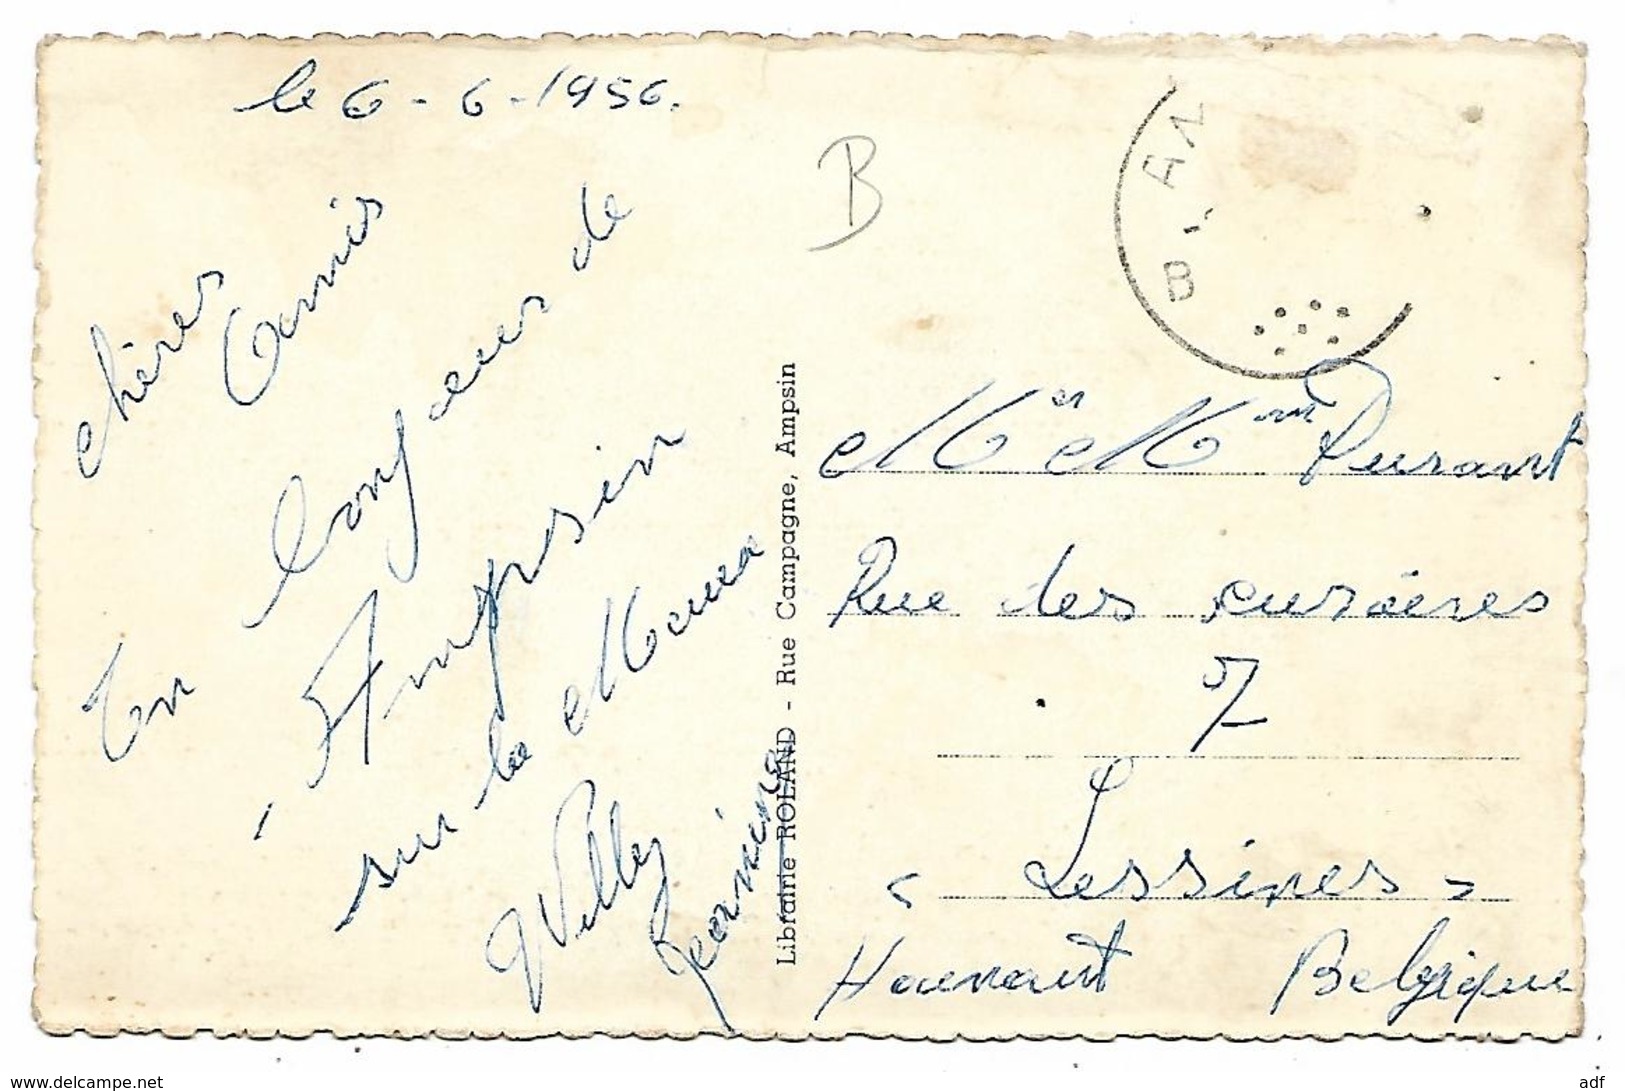 le 6-6-1956.
chères
Amis
En Longueur de
Ampsin
sur la Meuse
Willy
Jeannine
B
AN
B
Librairie ROLAND - Rue Campagne, Ampsin
Mr et Mme Durant
Rue des
7
Lessines
Hainaut Belgique
www.delcampe.net
adf